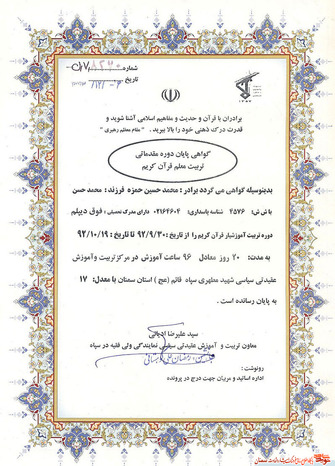 شماره
تاریخ
برادران با قرآن و حدیث و مفاهیم اسلامی آشنا شوید و
قدرت درک ذهنی خود را بالا ببرید. "مقام معظم رهبری"
گواهی پایان دوره مقدماتی
تربیت معلم قرآن کریم
بدینوسیله گواهی می گردد برادر : محمد حسین حمزه فرزند: محمد حسن
با ش ش: ۴۵۷۶ شناسه پاسداری: ۰۲۱۶۴۶۰۴ دارای مدرک تحصیلی : فوق دیپلم
دوره تربیت آموزشیار قرآن کریم را از تاریخ : ۹۲/۹/۳۰ تا تاریخ : ۹۲/۱۰/۱۹
به مدت: ۲۰ روز معادل ۹۶ ساعت آموزش در مرکز تربیت و آموزش
عقیدتی سیاسی شهید مطهری سپاه قائم (عج) استان سمنان با معدل: ۱۷
به پایان رسانده است .
سید علیرضا ادیانی
معاون تربیت و آموزش عقیدتی سیاسی نمایندگی ولی فقیه در سپاه
رونوشت :
اداره اساتید و مربیان جهت درج در پرونده